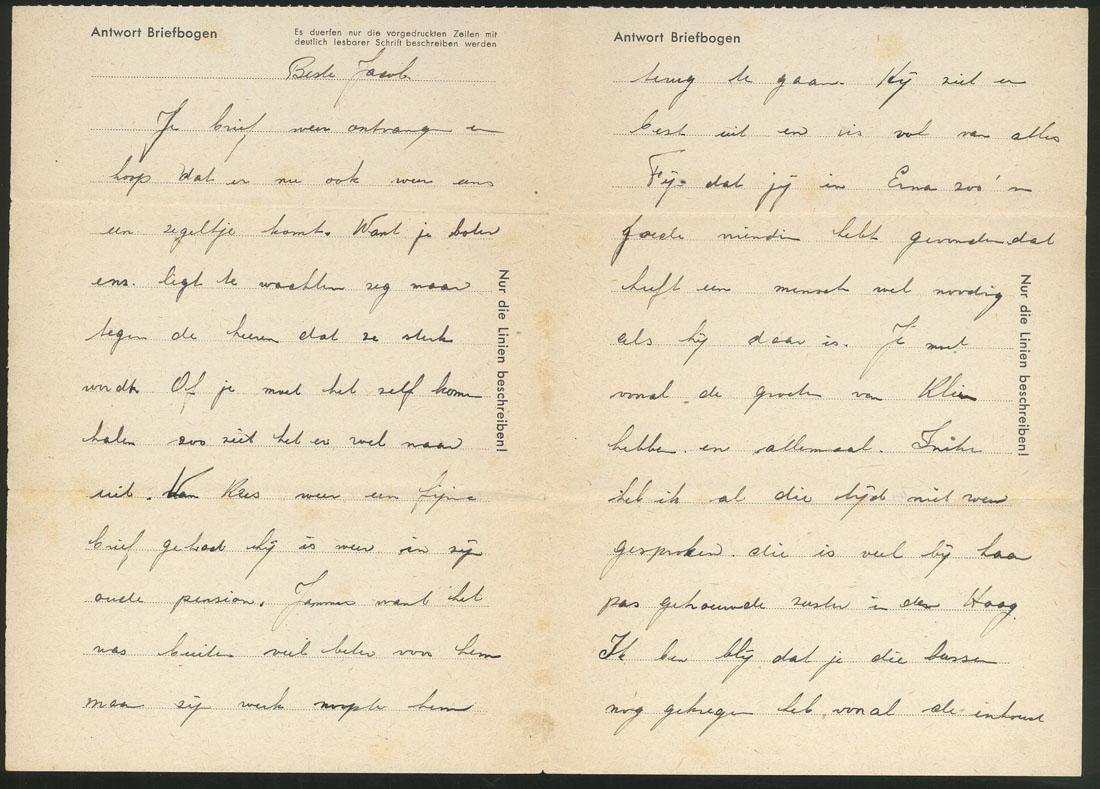 Antwort Briefbogen
Es duerfen nur die vorgedruckten Zeilen mit
deutlich lesbarer Schrift beschreiben werden
Beste Jacob
Je brief weer ontvangen en
hoop dat er nu ook weer eens
een zegeltje komt. Want je boter
enz. ligt te wachten zeg maar
tegen de heeren dat ze sterk
wordt. Of je moet het self komen
halen zoo ziet het er wel naar
uit. Van Kees weer een fijne
brief gehad hij is weer in zijn
oude pension. Jammer want het
was buiten veel beter voor hem
maar zijn werk noopte hem
Nur die Linien beschreiben!
Antwort Briefbogen
terug te gaan. Hij ziet er
best uit en is vol van alles
Fijn dat jij in Erna zoo'n
goede vriendin hebt gevonden dat
heeft een mensch wel noodig
als hij daar is. Je moet
vooral de groeten van
hebben en allemaal.
heb ik al die tijd niet weer
gesproken. die is veel bij haar
pas getrouwde zuster in den Haag.
Ik ben blij dat je die
nog gekregen heb vooral de inhoud
Nur die Linien beschreiben!